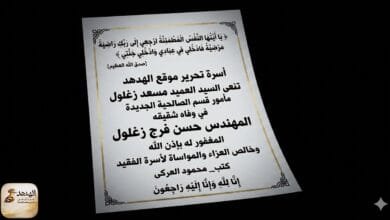 ﴿ يَا أَيَّتُهَا النَّفْسُ الْمُطْمَئِنَّةُ ارْجِعِي إِلَى رَبِّكِ رَاضِيَةً
مَرْضِيَّةً فَادْخُلِي فِي عِبَادِي وَادْخُلِي جَنَّتِي ﴾
(صدق الله العظيم)
أسرة تحرير موقع الهدهد
تنعى السيد العميد مسعد زغلول
مأمور قسم الصالحية الجديدة
في وفاه شقيقه
المهندس حسن فرج زغلول
المغفور له بإذن الله
وخالص العزاء والمواساة لأسرة الفقيد
كتب_ محمود العركى
إِنَّا لِلَّهِ وَإِنَّا إِلَيْهِ رَاجِعُونَ
الهدهد